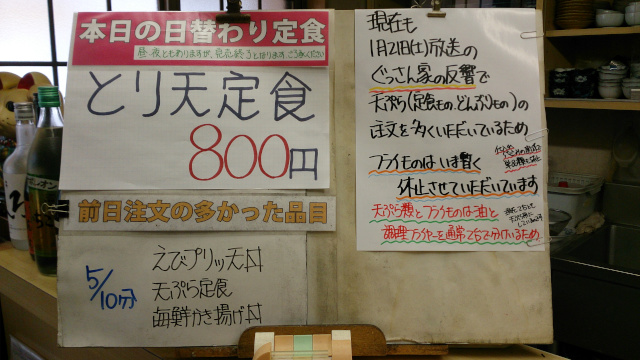 本日の日替わり定食
昼・夜ともありますが、完売終了となります。ご了承ください
とり天定食
800円
前日注文の多かった品目
5/10分
えびプリッ天丼
天ぷら定食
海鮮かき揚げ丼
現在も
1月21日(土)放送の
ぐっさん家の反響で
天ぷら(定食もの、どんぶりもの)の
注文を多くいただいているため
フライものはいま暫く
休止させていただいています
天ぷら類とフライものは油と
調理フライヤーを通常2台で分けているため